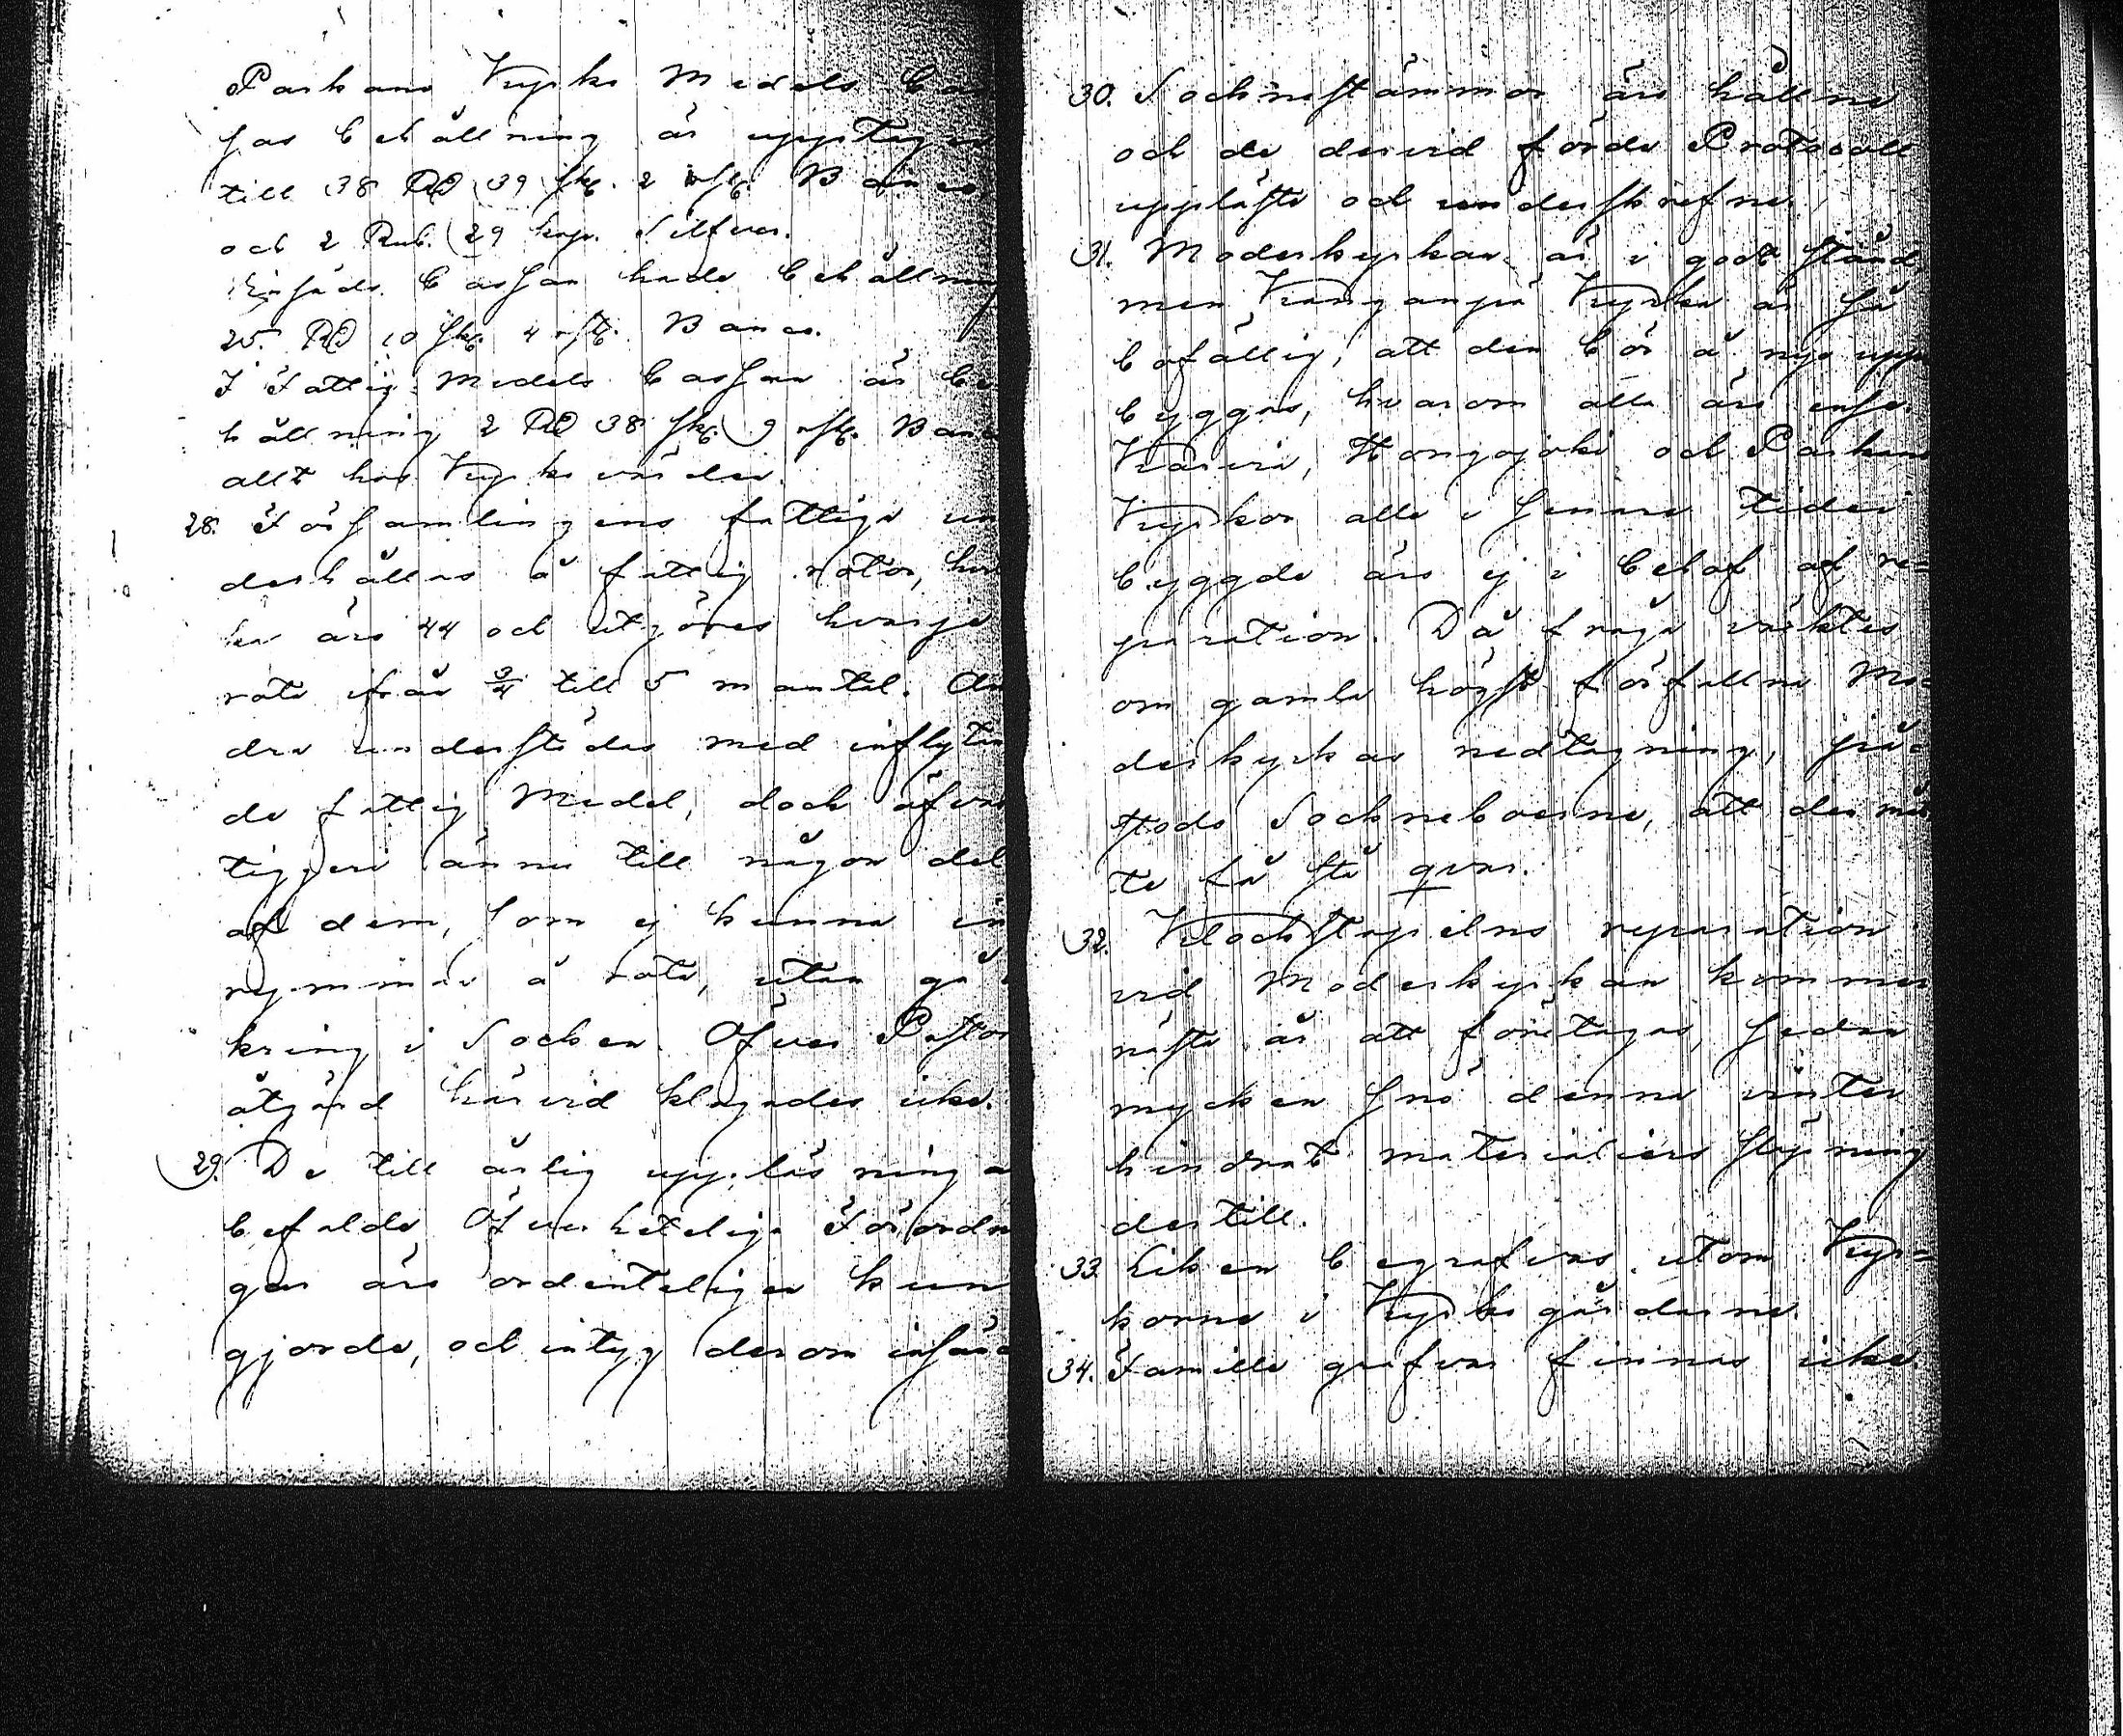 Parkano Kyrko Medels Ca
sas behållning är upptagen
till 38 RD 39 sk. 2 rst. Banco
och 2 Rub. 29 kop. Silfver.
Cassan hade behållning
25. RD 10 sk. 4 rst. Banco.
I Fattig Medels Cassan är be
hållning 2 RD 38 sk. 9 rst. Banco
allt hos Kyrko värden.
28. Församlingens fattiga un
derhållas å fattig rotor, hvil
ka äro 44 och utgöres hvarje
rote ifrån 3/4 till 5 mantal. An
dra understödes med inflytan
de fattig Medel, dock öfvas
tiggeri ännu till någon del
af dem, som ej kunna in
rymmas å rote, utan gå
kring i Socken. Öfver Pastors
åtgärd härvid klagades icke.
29. De till årlig uppläsning a
befalde Öfverhetelige Förordnin
gar äro ordenteligen kun
gjorde, och intyg derom insänd
30. Socknestämmor äro hållne
och de dervid förde Protocoll
uppläste och underskrefne.
31. Moderkyrkan är i godt stånd,
men Kyrka är så
bofällig, att den bör å nyo upp
byggas, hvarom alla äro ense.
Karvia, Hongojoki och Parkano
Kyrkor alla i senare tider
byggde äro ej i behof af re-
paration. Då fråga väktes
om gamla högst förfallna Mo-
derkyrkas nedtagning, på-
stodo Sockneboerne, att den mås
te få stå qvar.
32. Klockstapelns reparation
vid Moderkyrkan kommer
nästa år att företagas, sedan
mycken snö denna vinter
hindrat materialiers släpning
dertill.
33. Liken begrafvas utom Kyr-
korna i Kyrkogårdarne.
34. Famille grafvar finnas icke